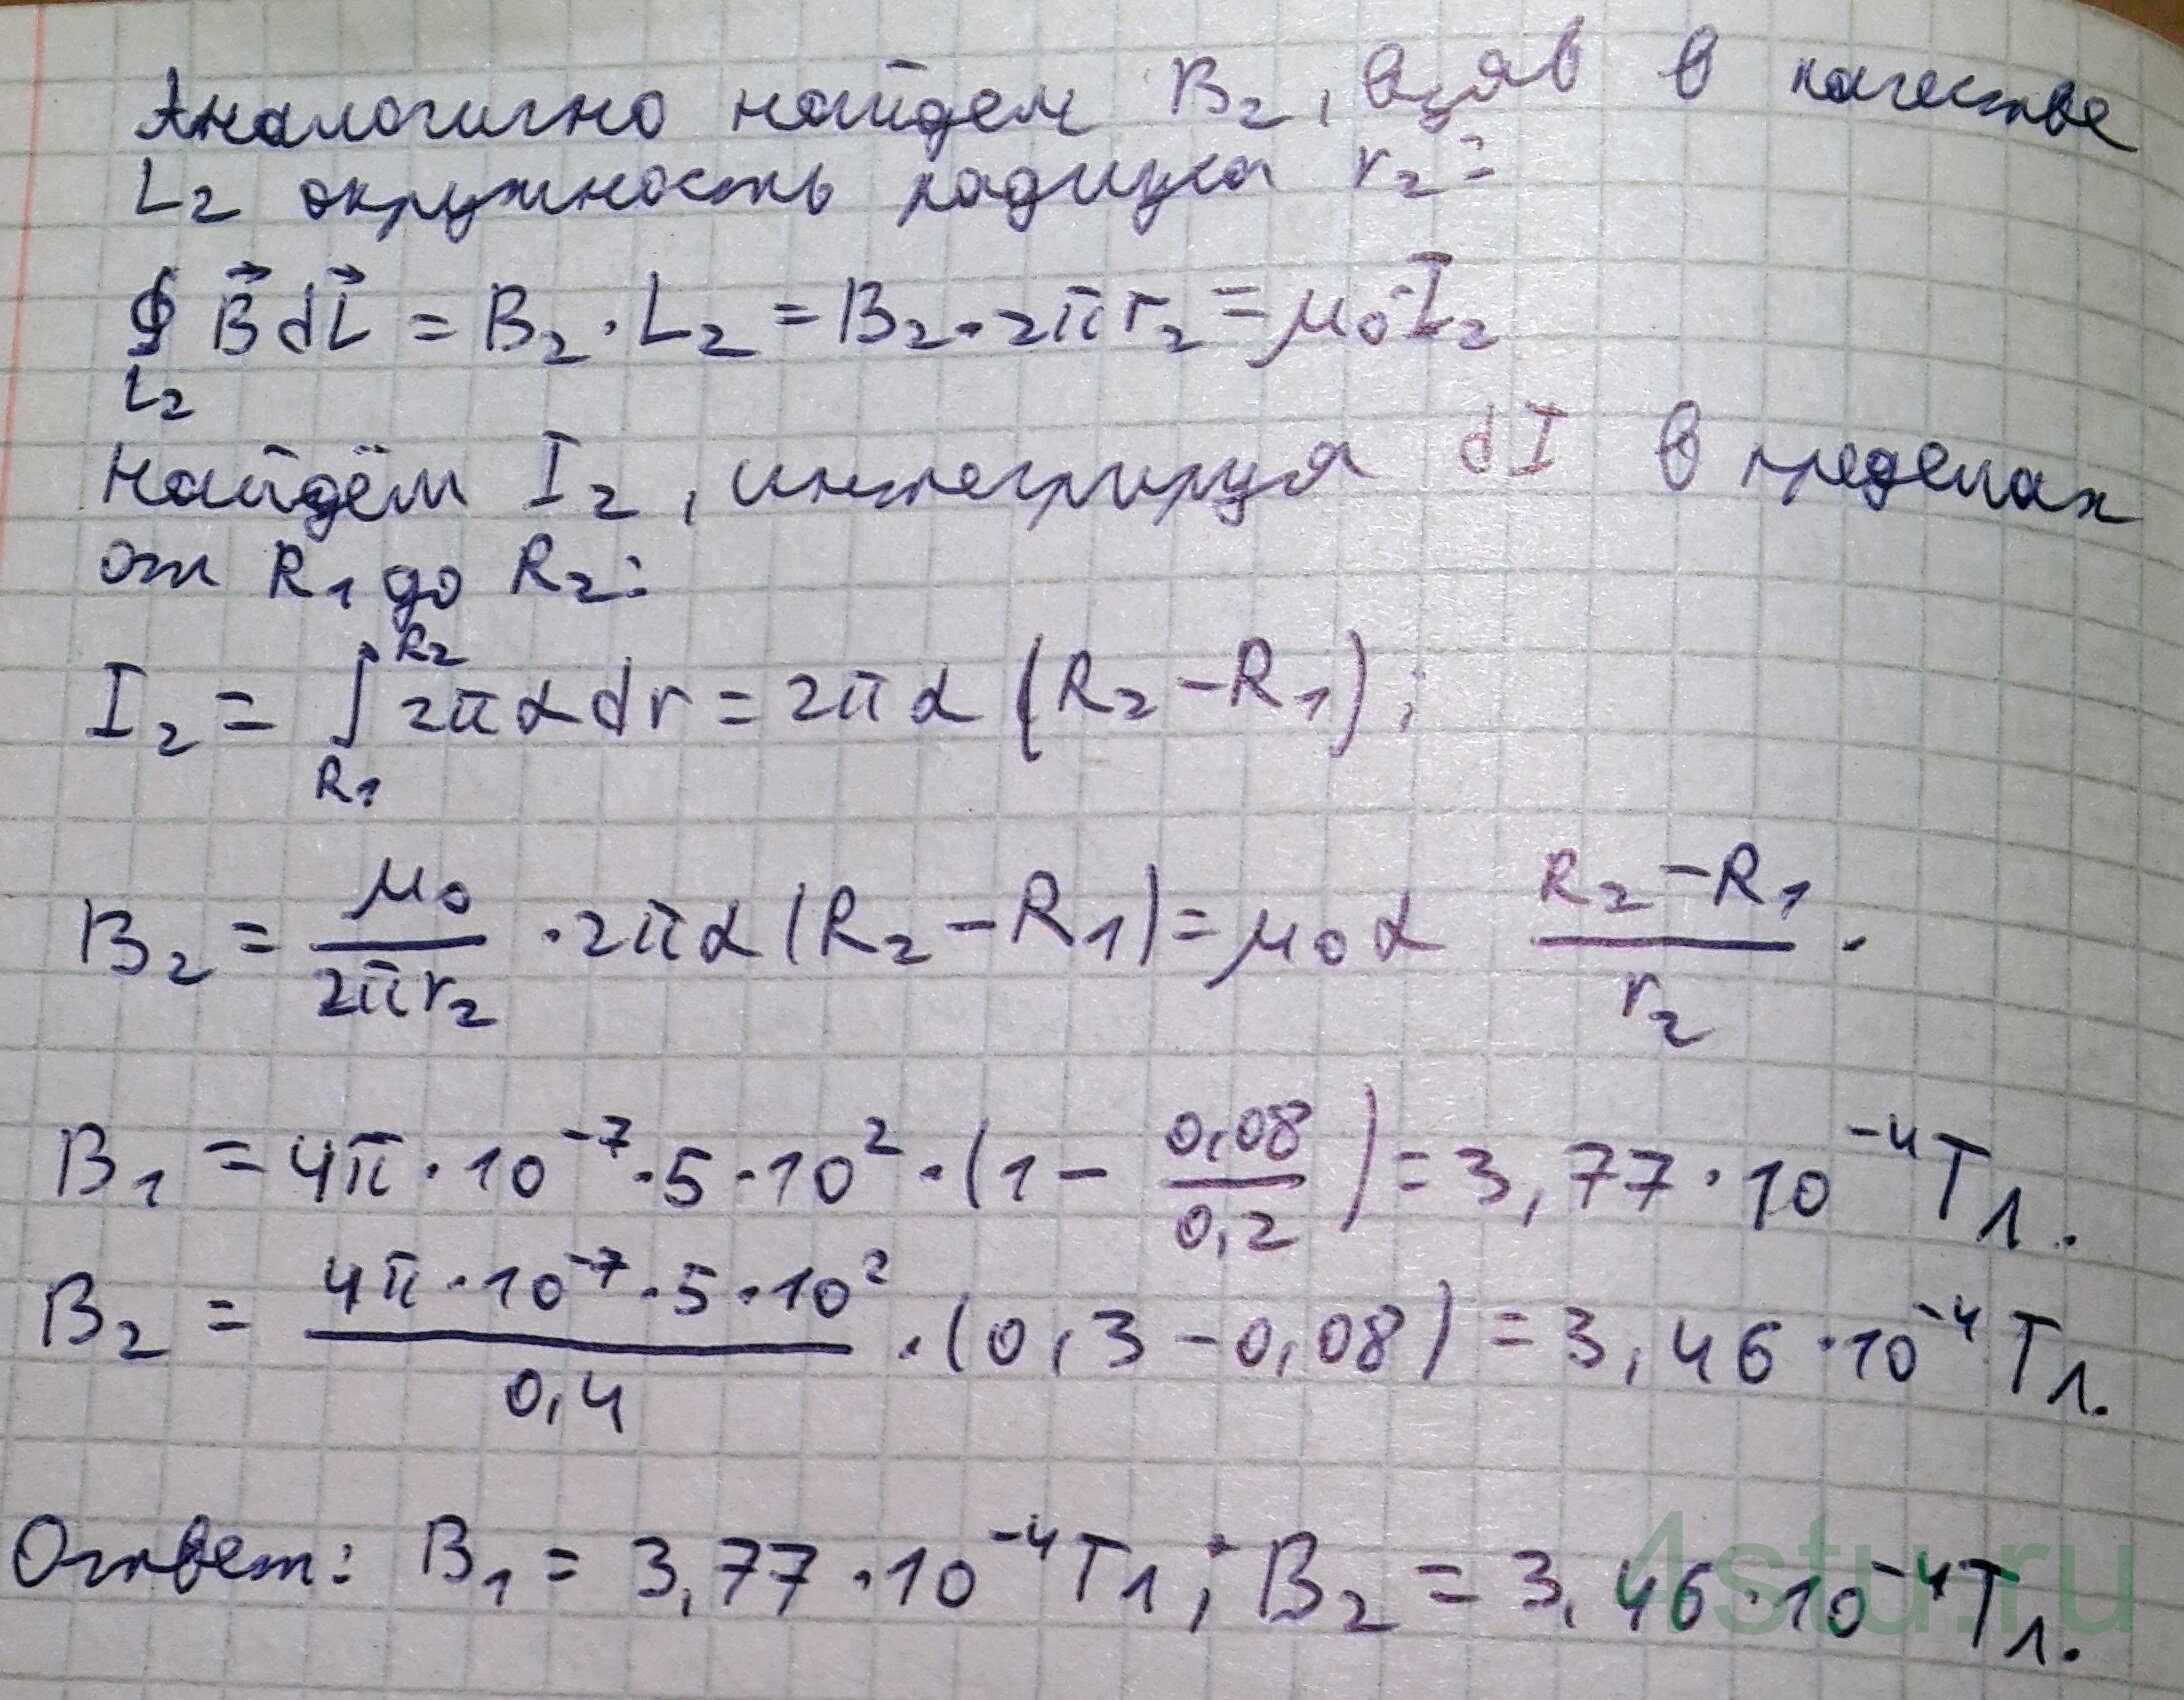 Аналогично найдем B₂, взяв в качестве
L₂ окружность радиуса r₂:
∮ B⃗ dL⃗ = B₂ · L₂ = B₂ · 2π r₂ = μ₀ I₂
L₂
Найдём I₂, интегрируя dI в пределах
от R₁ до R₂:
I₂ = ∫_{R₁}^{R₂} 2π α dr = 2π α (R₂ − R₁);
B₂ = μ₀/(2π r₂) · 2π α (R₂ − R₁) = μ₀ α (R₂ − R₁)/r₂ .
B₁ = 4π · 10⁻⁷ · 5 · 10² · (1 − 0,08/0,2) = 3,77 · 10⁻⁴ Тл.
B₂ = (4π · 10⁻⁷ · 5 · 10²)/0,4 · (0,3 − 0,08) = 3,46 · 10⁻⁴ Тл.
Ответ: B₁ = 3,77 · 10⁻⁴ Тл; B₂ = 3,46 · 10⁻⁴ Тл.
4stu.ru